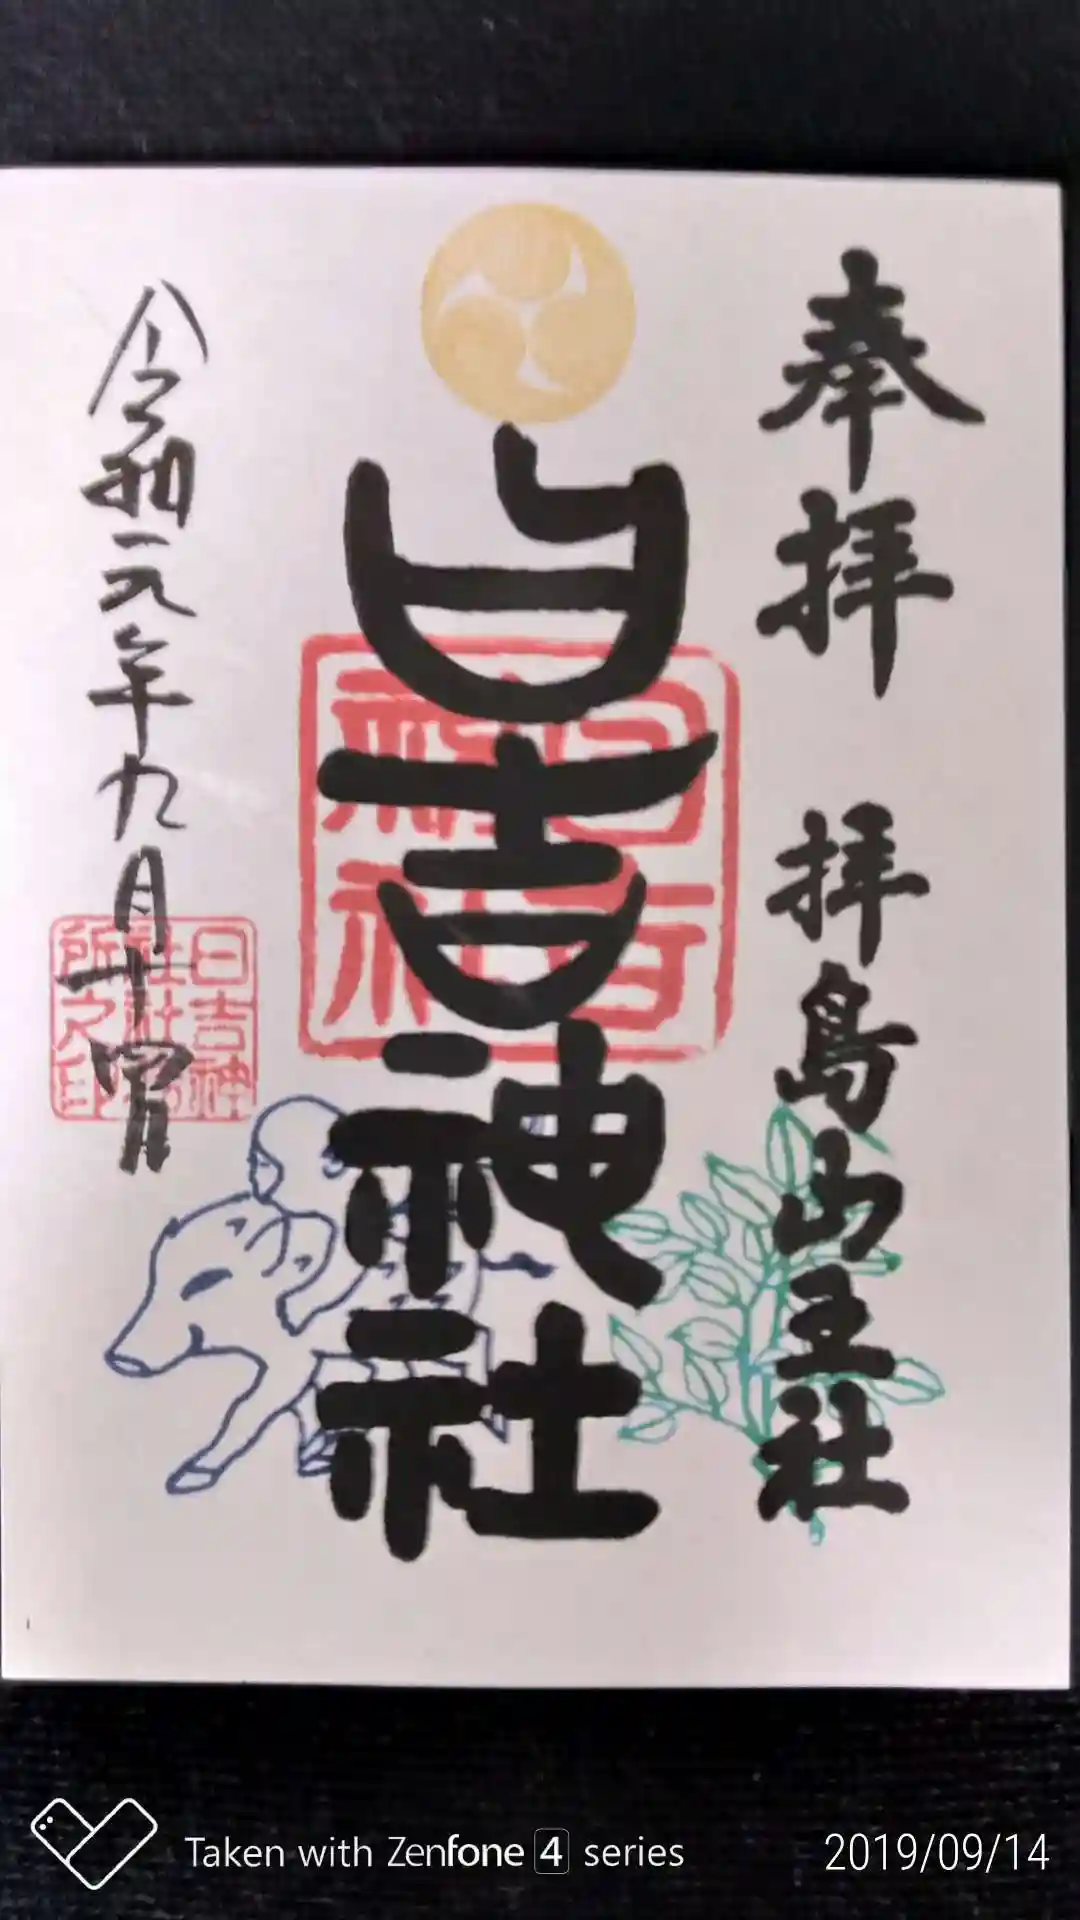 奉拝
拝島山王社
日吉神社
日吉神社
令和元年九月十四日
日吉神
社社務
所之印
Taken with Zenfone 4 series
2019/09/14